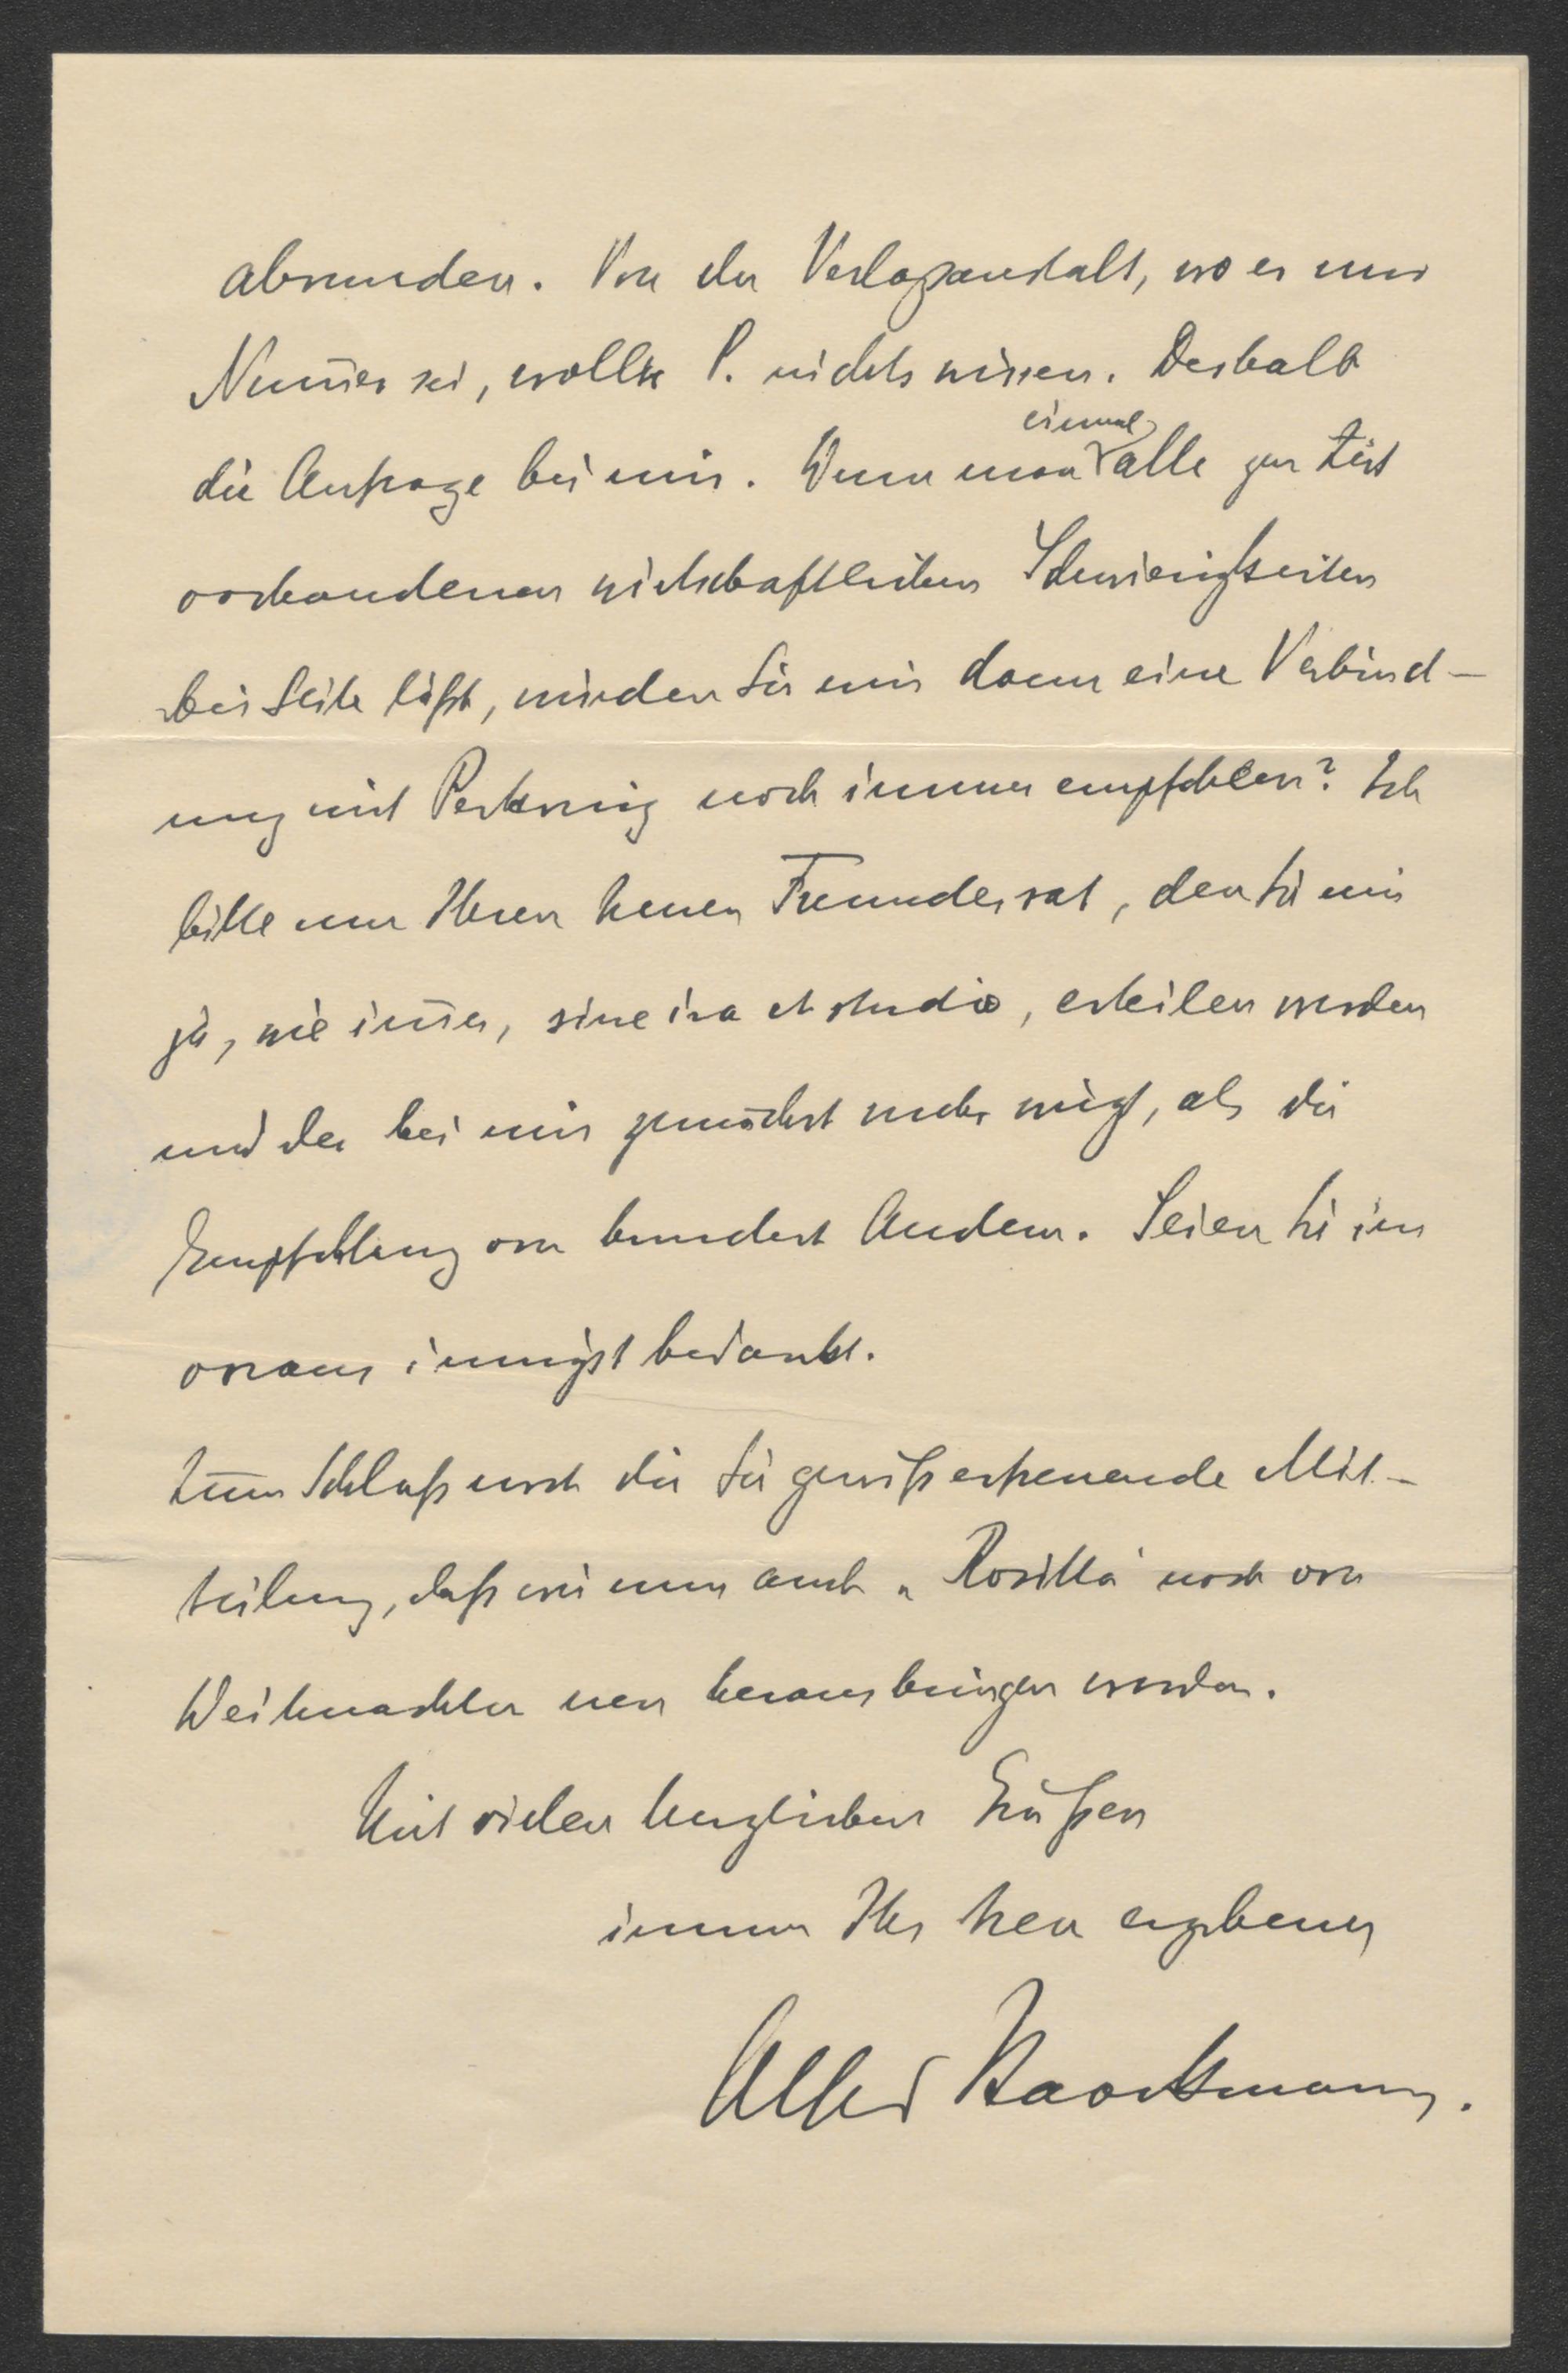 abrunden. Von der Verlagsanstalt, wo er nur
Num̄er sei, wollte P. nichts wissen. Deshalb
die Anfrage bei mir. Wenn man einmal alle zur Zeit
vorhandenen wirtschaftlichen Schwierigkeiten
bei Seite läßt, würden Sie mir dann eine Verbind-
ung mit Perkonig noch immer empfehlen? Ich
bitte um Ihren treuen Freundesrat, den Sie mir
ja, wie im̄er, sine ira et studio, erteilen werden
und der bei mir zunächst mehr wiegt, als die
Empfehlung von hundert Andern. Seien Sie im
voraus innigst bedankt.
Zum Schluß noch die Sie gewiß erfreuende Mit-
teilung, daß wir nun auch „Rositta" noch vor
Weihnachten neu herausbringen werden.
Mit vielen herzlichen Grüßen
immer Ihr treu ergebener
Alfred Staackmann.